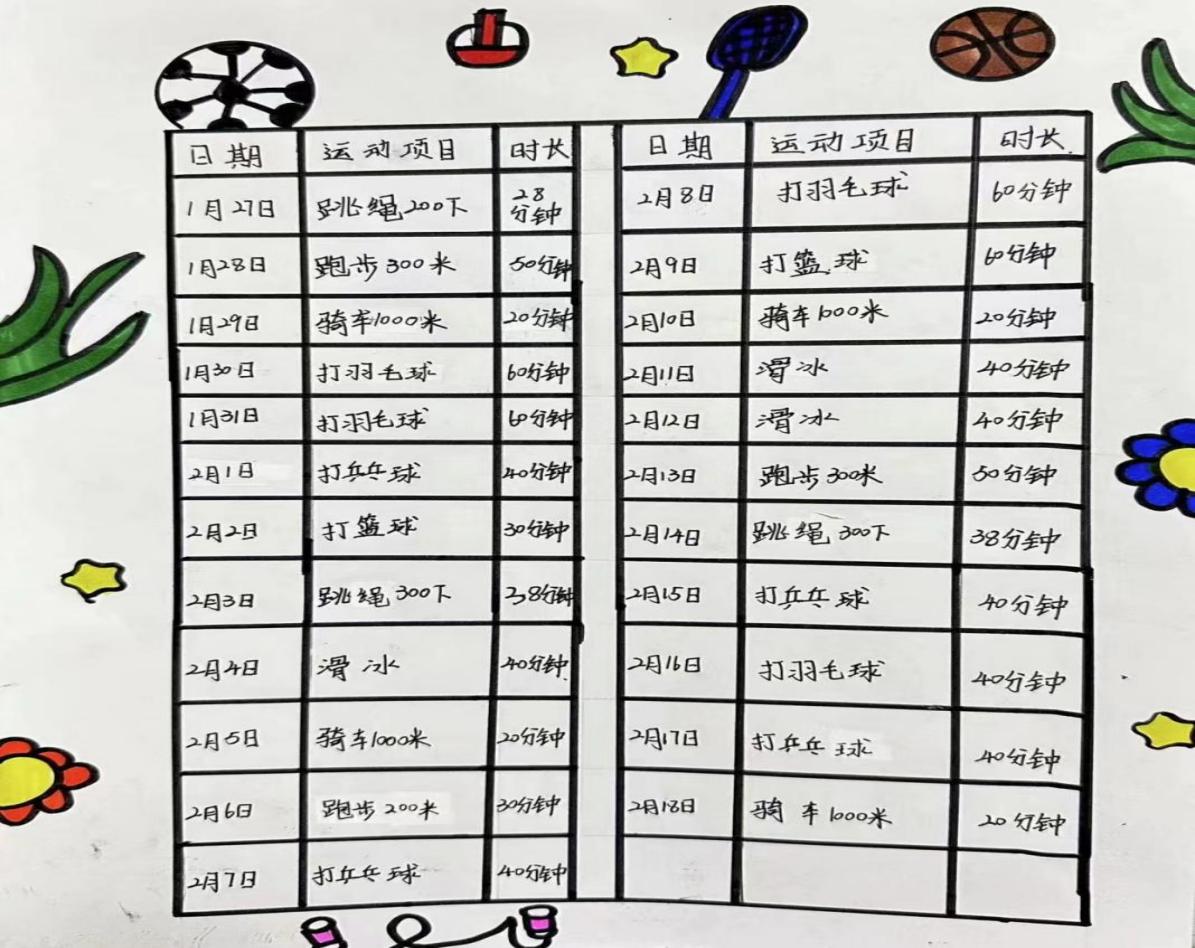 日期 运动项目 时长
1月27日 跳绳200下 28分钟
1月28日 跑步300米 50分钟
1月29日 骑车1000米 20分钟
1月30日 打羽毛球 60分钟
1月31日 打羽毛球 60分钟
2月1日 打乒乓球 40分钟
2月2日 打篮球 30分钟
2月3日 跳绳300下 38分钟
2月4日 滑冰 40分钟
2月5日 骑车1000米 20分钟
2月6日 跑步200米 30分钟
2月7日 打乒乓球 40分钟
日期 运动项目 时长
2月8日 打羽毛球 60分钟
2月9日 打篮球 60分钟
2月10日 骑车1000米 20分钟
2月11日 滑冰 40分钟
2月12日 滑冰 40分钟
2月13日 跑步300米 50分钟
2月14日 跳绳300下 38分钟
2月15日 打乒乓球 40分钟
2月16日 打羽毛球 40分钟
2月17日 打乒乓球 40分钟
2月18日 骑车1000米 20分钟